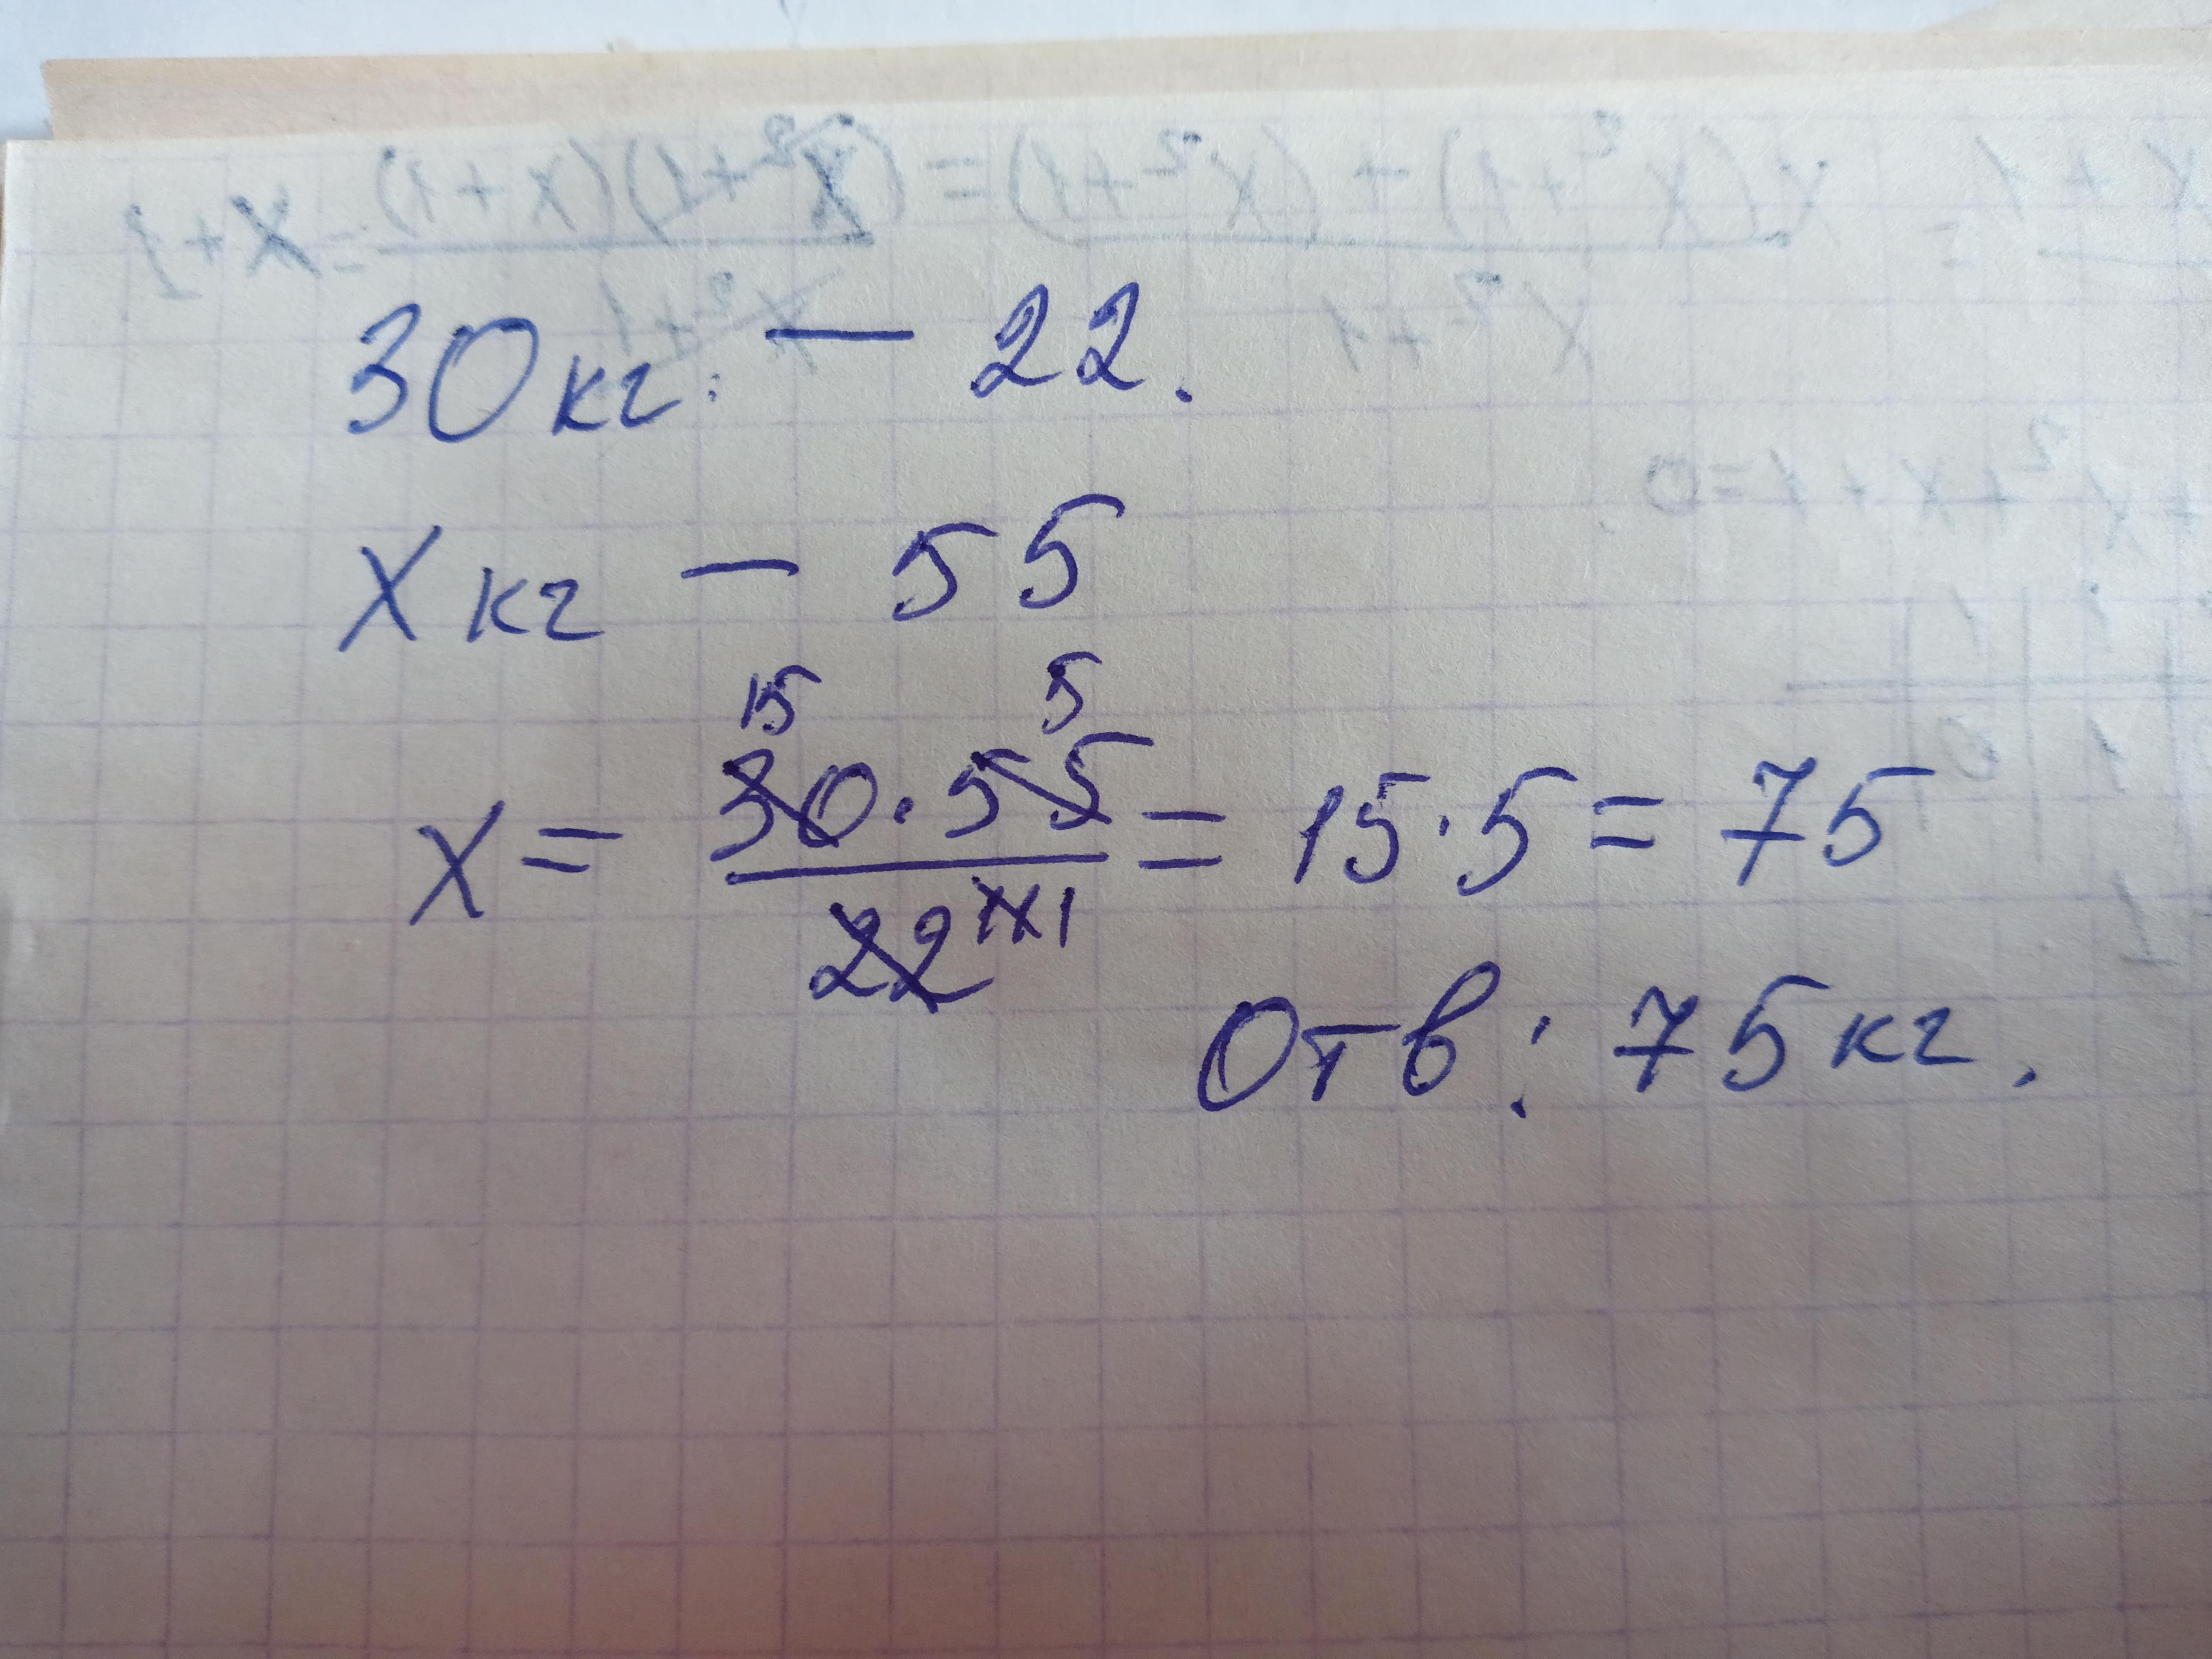 30кг. — 22.
Xкг — 55
15 5
X = 30·55 / 22 = 15·5 = 75
1
Отв: 75кг.